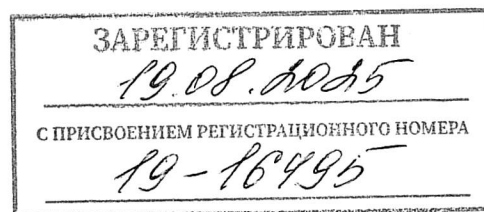 ЗАРЕГИСТРИРОВАН
19.08.2025
С ПРИСВОЕНИЕМ РЕГИСТРАЦИОННОГО НОМЕРА
19-16495